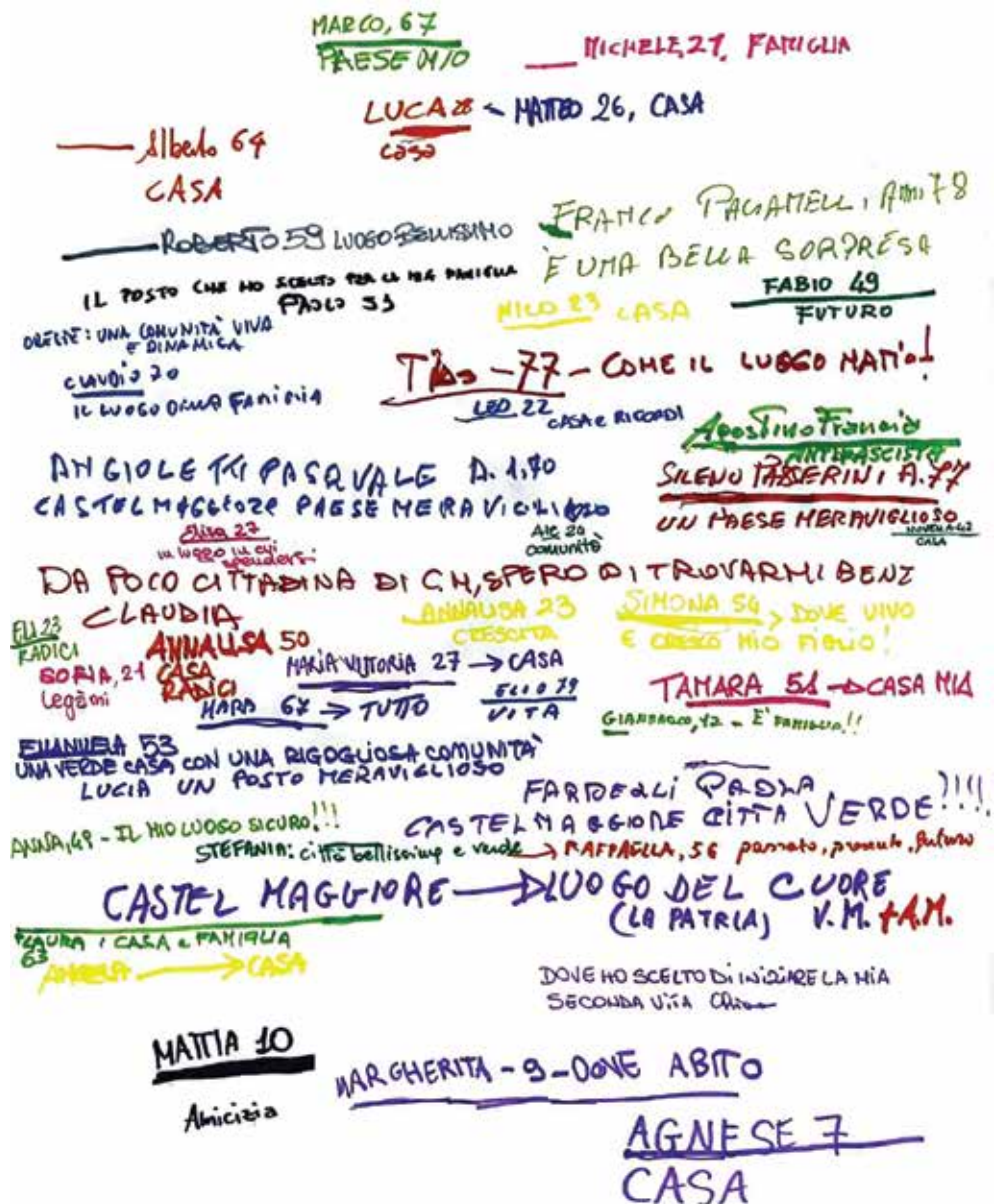 MARCO, 67
PAESE MIO
MICHELE, 21, FAMIGLIA
LUCA 28
casa
MATTEO 26, CASA
Alberto 64
CASA
ROBERTO 59 LUOGO BELLISSIMO
FRANCO PAGANELLI, Anni 78
È UNA BELLA SORPRESA
IL POSTO CHE HO SCELTO PER LA MIA FAMIGLIA
PAOLO
NICO 23 CASA
FABIO 49
FUTURO
ORESTE: UNA COMUNITÀ VIVA
E DINAMICA
CLAUDIO 70
IL LUOGO DELLA FAMIGLIA
77 - COME IL LUOGO NATIO!
LEO 22 CASA e RICORDI
Agostino Francia
ANTIFASCISTA
ANGIOLETTI PASQUALE A. 1,70
CASTEL MAGGIORE PAESE MERAVIGLIOSO
SILENO PASSERINI A. 77
UN PAESE MERAVIGLIOSO
CASA
Elisa 27
un luogo in cui
spendersi
Ale 20
comunità
DA POCO CITTADINA DI C.M, SPERO DI TROVARMI BENE
CLAUDIA
ELI 23
RADICI
ANNALISA 50
CASA
RADICI
ANNALISA 23
CRESCITA
SIMONA 54 > DOVE VIVO
E CRESCO MIO FIGLIO!
SOFIA, 21
Legami
MARIA VITTORIA 27 → CASA
MARA 67 → TUTTO
ELIO 79
VITA
TAMARA 51 → CASA MIA
GIANMARCO, 42 - È FAMIGLIA!!
EMANUELA 53
UNA VERDE CASA CON UNA RIGOGLIOSA COMUNITÀ
LUCIA UN POSTO MERAVIGLIOSO
PAOLA
CASTELMAGGIORE CITTÀ VERDE!!!!
ANNA, 49 - IL MIO LUOGO SICURO!!!
STEFANIA: città bellissima e verde
RAFFAELLA, 56 passato, presente, futuro
CASTEL MAGGIORE → LUOGO DEL CUORE
(LA PATRIA) V.M. + A.M.
LAURA: CASA e FAMIGLIA
63
ANGELA → CASA
DOVE HO SCELTO DI INIZIARE LA MIA
SECONDA VITA Chiara
MATTIA 10
Amicizia
MARGHERITA - 9 - DOVE ABITO
AGNESE 7
CASA